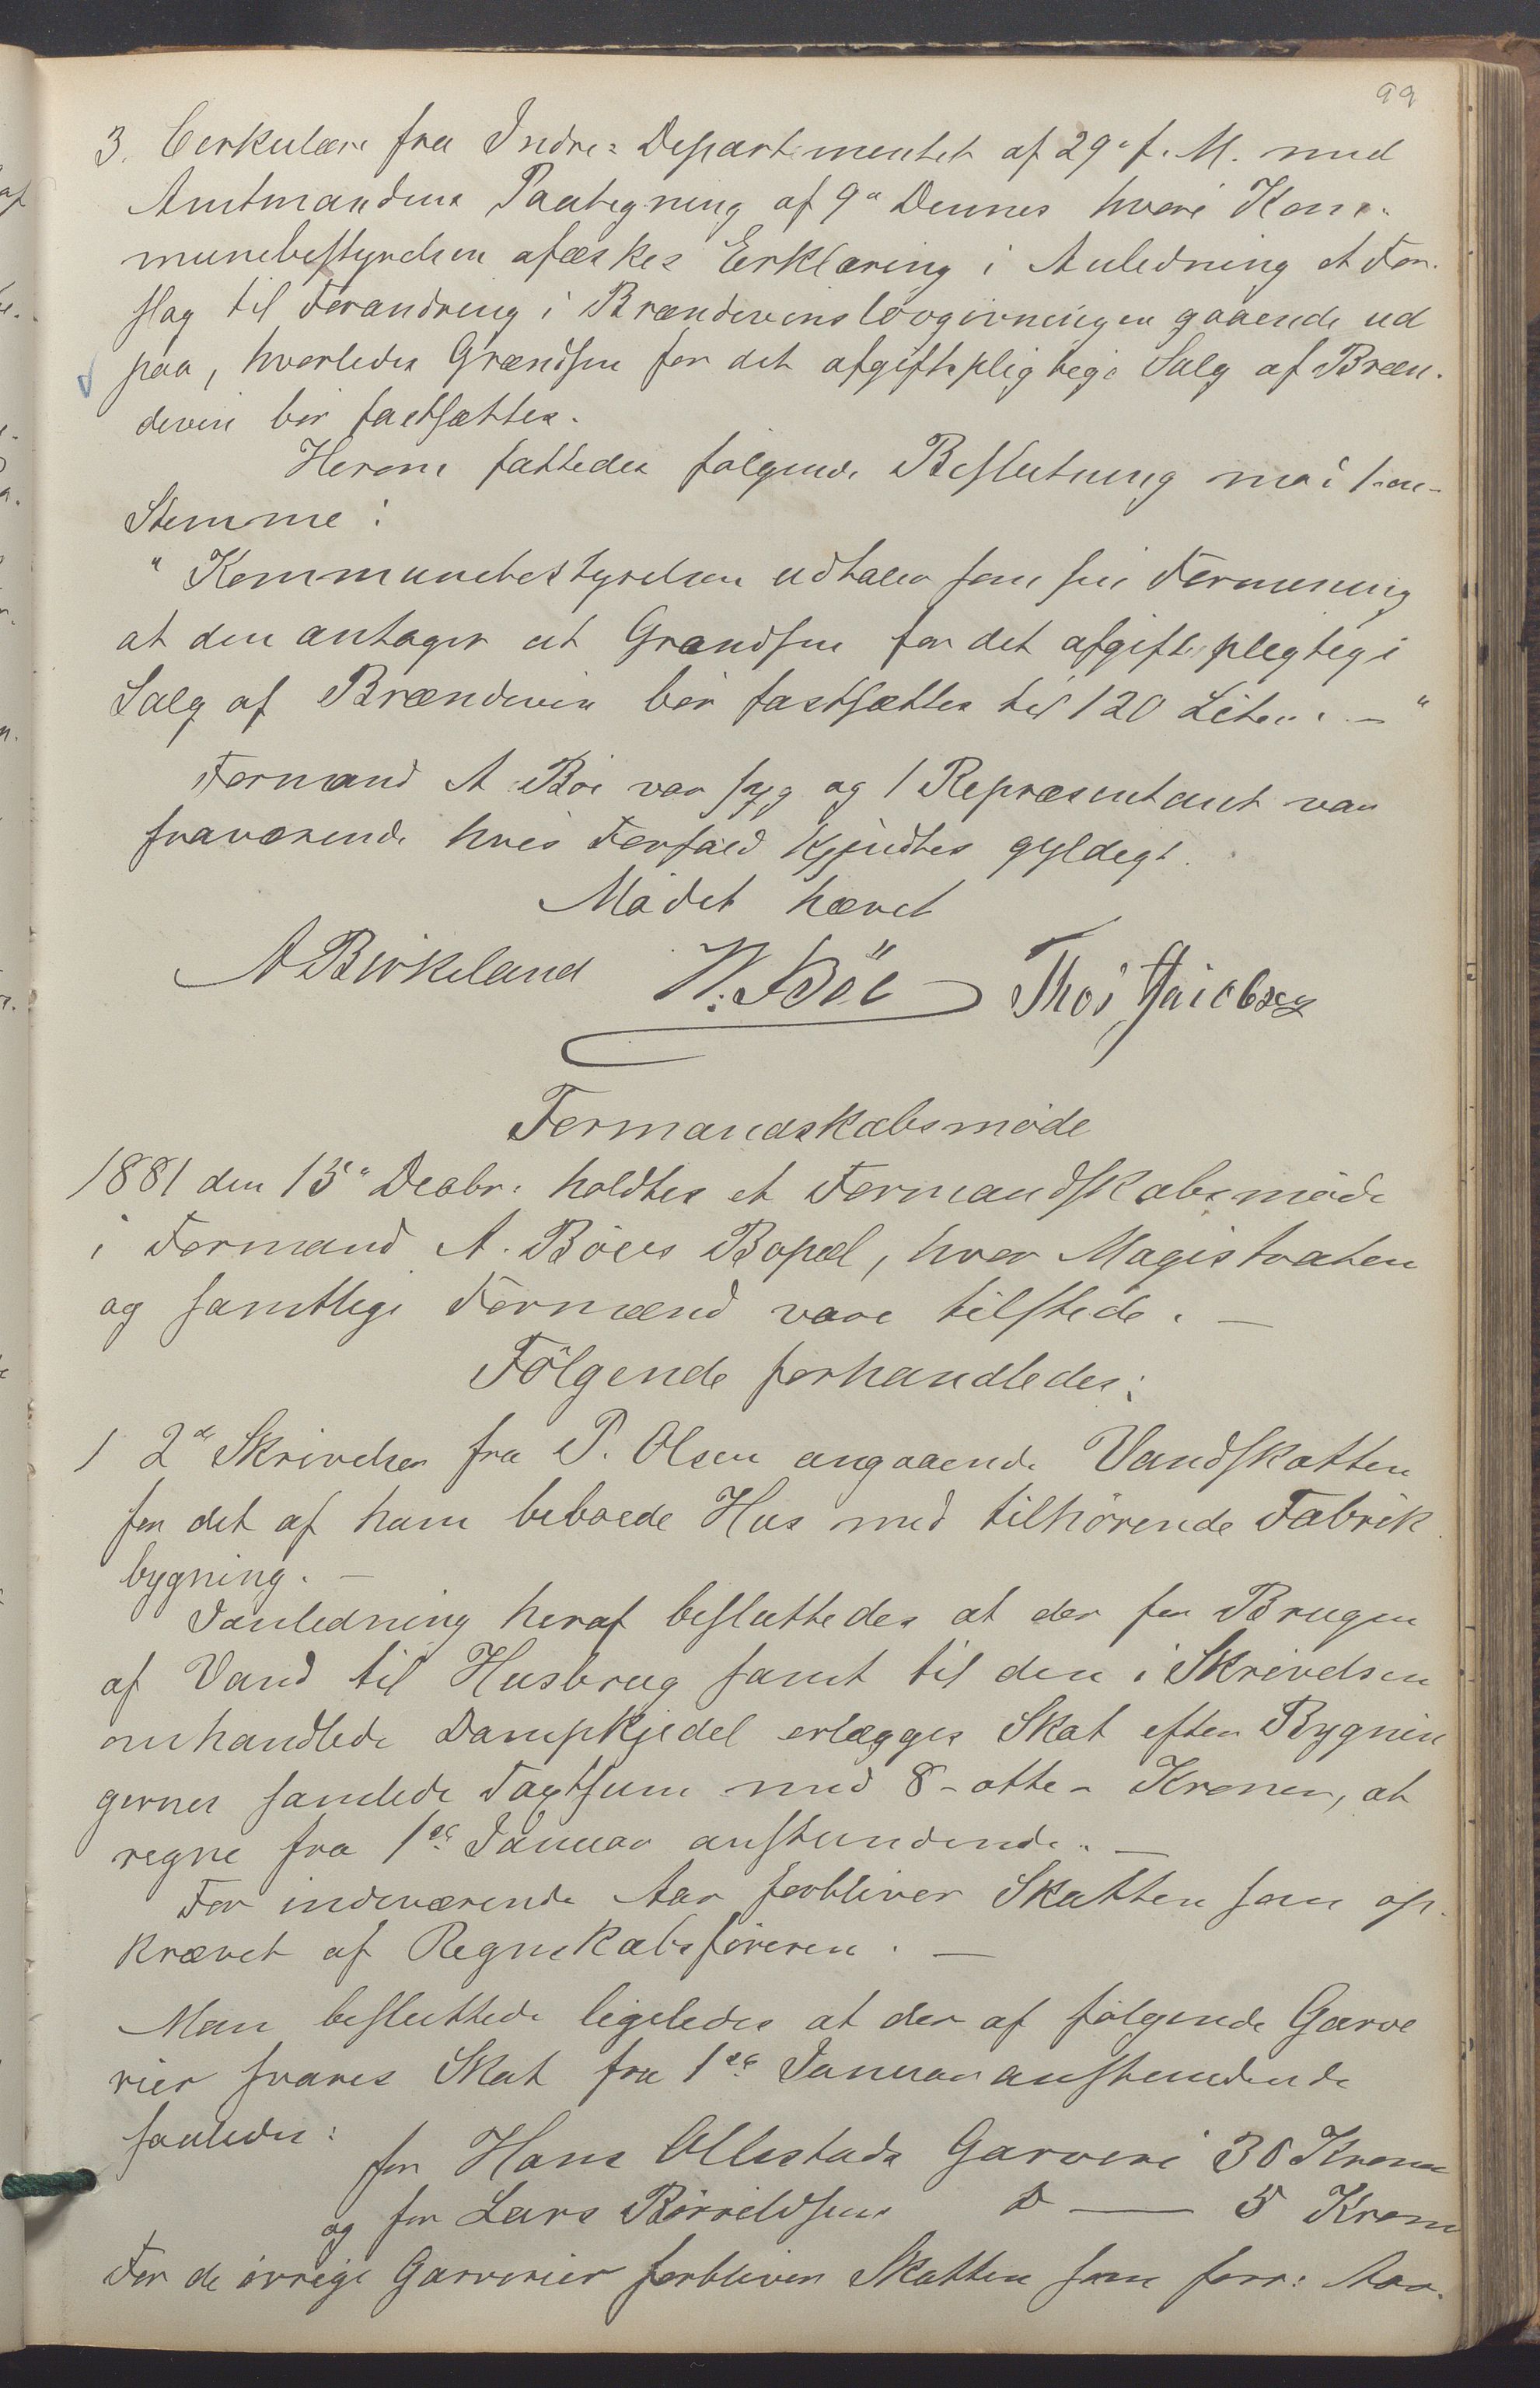 99
3. Cirkulære fra Indre-Departementet af 29de f. M. med
Amtmandens Paategning af 9de Dennes hvori Kom-
munebestyrelsen afæskes Erklæring i Anledning et For-
slag til Forandring i Brændevinslovgivningen gaaende ud
paa, hvorledes Grændsen for det afgiftspligtige Salg af Bræn-
devin bør fastsættes.
Herom fattedes følgende Beslutning mod 1 en
Stemme:
"Kommunebestyrelsen udtaler som sin Formening
at den antager at Grændsen for det afgiftspligtige
Salg af Brændevin bør fastsættes til 120 Liter. — "
Formand A. Böe var syg og 1 Repræsentant var
fraværende hvis Forfald kjendtes gyldigt.
Mødet hævet
A Birkeland W. Böe Thos. Jacobsen
Formandskabsmøde
1881 den 15de Decbr. holdtes et Formandskabsmøde
i Formand A. Böes Bopæl, hvor Magistraten
og samtlige Formænd vare tilstede. —
Følgende forhandledes:
1 2de Skrivelser fra P. Olsen angaaende Vandskatten
for det af ham beboede Hus med tilhørende Fabrik
bygning. —
I anledning heraf besluttedes at der for Brugen
af Vand til Husbrug samt til den i Skrivelsen
omhandlede Dampkjedel erlægges Skat efter Bygnin
gernes samlede Taxtsum med 8 - otte - Kroner, at
regne fra 1ste Januar anstundende. —
For indeværende Aar forbliver Skatten som op-
krævet af Regnskabsføreren. —
Man besluttede ligeledes at der af følgende Garve
rier svares Skat fra 1ste Januar anstundende
saaledes:
for Hans Ollestads Garveri 30 Kroner
og for Lars Børrildsens D — 5 Kroner
For de øvrige Garverier forbliver Skatten som forr: Aar.